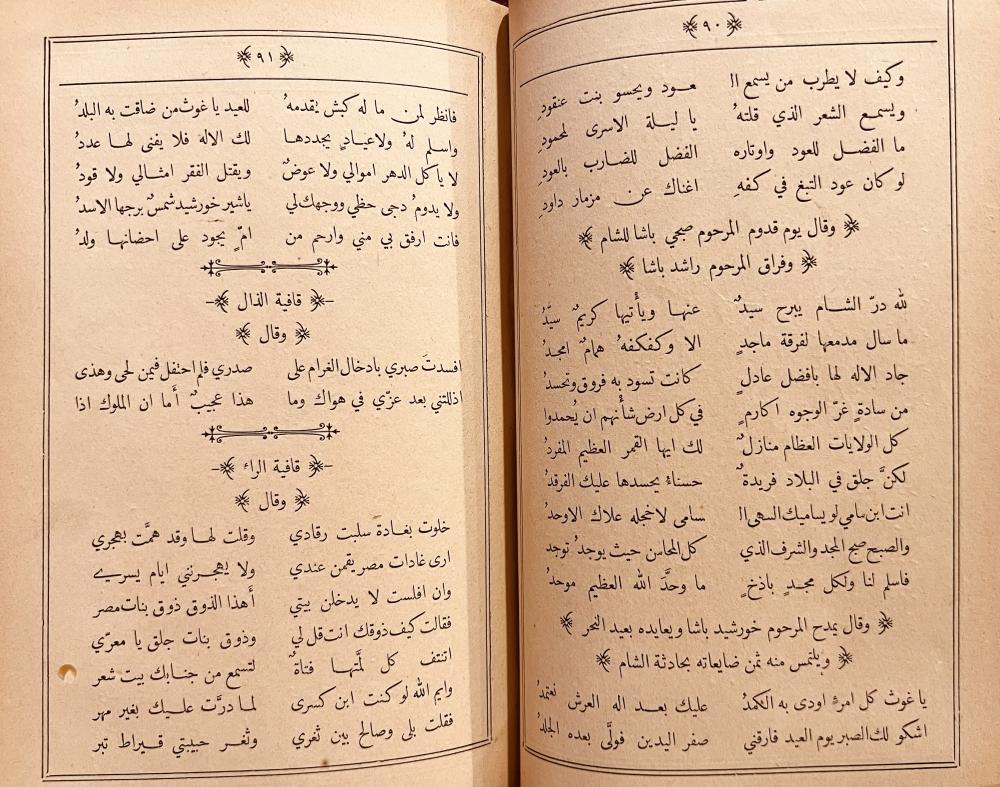 ٩٠
وكيف لا يطرب من يسمع ال عـود ويحسو بنت عنقودِ
ويسمـع الشعر الذي قلتهُ يا ليـلة الاسرى لمحمودِ
ما الفضـل للعود واوتاره الفضل للضارب بالعودِ
لو كان عود التبغ في كفهِ اغناك عن مزمار داودِ
وقال يوم قدوم المرحوم صبحي باشا للشام
وفراق المرحوم راشد باشا
لله درّ الشـام يبرح سيدٌ عنهـا ويأتيها كريمٌ سيّدُ
ما سال مدمعها لفرقة ماجدٍ الا وكفكفهُ همامٌ امجدُ
جاد الاله لها بافضل عادلٍ كانت تسود به فروق وتحسدُ
من سادةٍ غرّ الوجوه اكارمٍ في كل ارض شأنهم ان يُحمدوا
كل الولايات العظام منازلٌ لك ايها القمر العظيم المفردُ
لكنَّ جلق في البلاد فريدةٌ حسناءُ يحسدها عليك الفرقدُ
انت ابن سامي لو يساميك السهى ال سامى لاخجله علاك الاوحدُ
والصبح صبح المجد والشرف الذي كل المحاسن حيث يوجدُ توجد
فاسلم لنا ولكل مجـدٍ باذخٍ ما وحدَّ الله العظيم موحدُ
وقال يمدح المرحوم خورشيد باشا ويعايده بعيد النحر
ويلتمس منه ثمن ضايعاته بحادثة الشام
يا غوث كل امرءٍ اودى به الكمدُ عليك بعـد اله العرش نعتمدُ
اشكو لك الصبر يوم العيد فارقني صفر اليدين فولَّى بعده الجلدُ
٩١
فانظر لمن ما له كبش يقدمهُ للعيد يا غوث من ضاقت به البلدُ
واسلم لهُ ولاعيـادٍ يجددهـا لك الالهُ فلا يفنى لهـا عددُ
لا ياكل الدهر اموالي ولا عوضٌ ويقتل الفقر امثـالي ولا قودُ
ولا يدومُ دجى حظي ووجهك لي ياشير خورشيد شمسٌ برجها الاسدُ
فانت ارفق بي مني وارحم من امٍّ يجود على احضانهـا ولدُ
قافية الذال
وقال
افسدتَ صبري بادخال الغرام على صدري فلم احتفل فيمن لحى وهذى
اذللتني بعد عزّي في هواك وما هذا عجيبٌ أما ان الملوك اذا
قافية الراء
وقال
خلوت بغـادة سلبت رقادي وقلت لهـا وقد همَّت بهجري
ارى غادات مصر يقمن عندي ولا يهجـرنني ايام يسرـے
وان افلست لا يدخلن بيتي أهذا الذوق ذوق بنات مصر
فقالت كيف ذوقك انت قل لي وذوق بنات جلق يا معرّي
اتنتف كل لمَّتهـا فتاةٌ لتسمع من جنابك بيت شعر
وايم الله لو كنت ابن كسرى لمـا درَّت عليـك بغير مهر
فقلت بلى وصالح بين ثغري وثغـر حبيبتي قيراط تبر